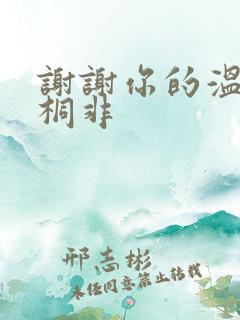 謝謝你的溫
桐非
邢志彬
未经同意禁止转载